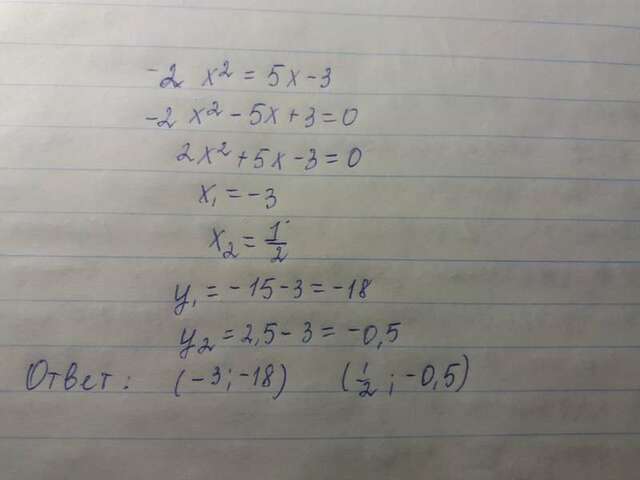 -2 x² = 5x - 3
-2 x² - 5x + 3 = 0
2x² + 5x - 3 = 0
x₁ = -3
x₂ = 1/2
y₁ = -15 - 3 = -18
y₂ = 2,5 - 3 = -0,5
Ответ: (-3; -18) (1/2; -0,5)